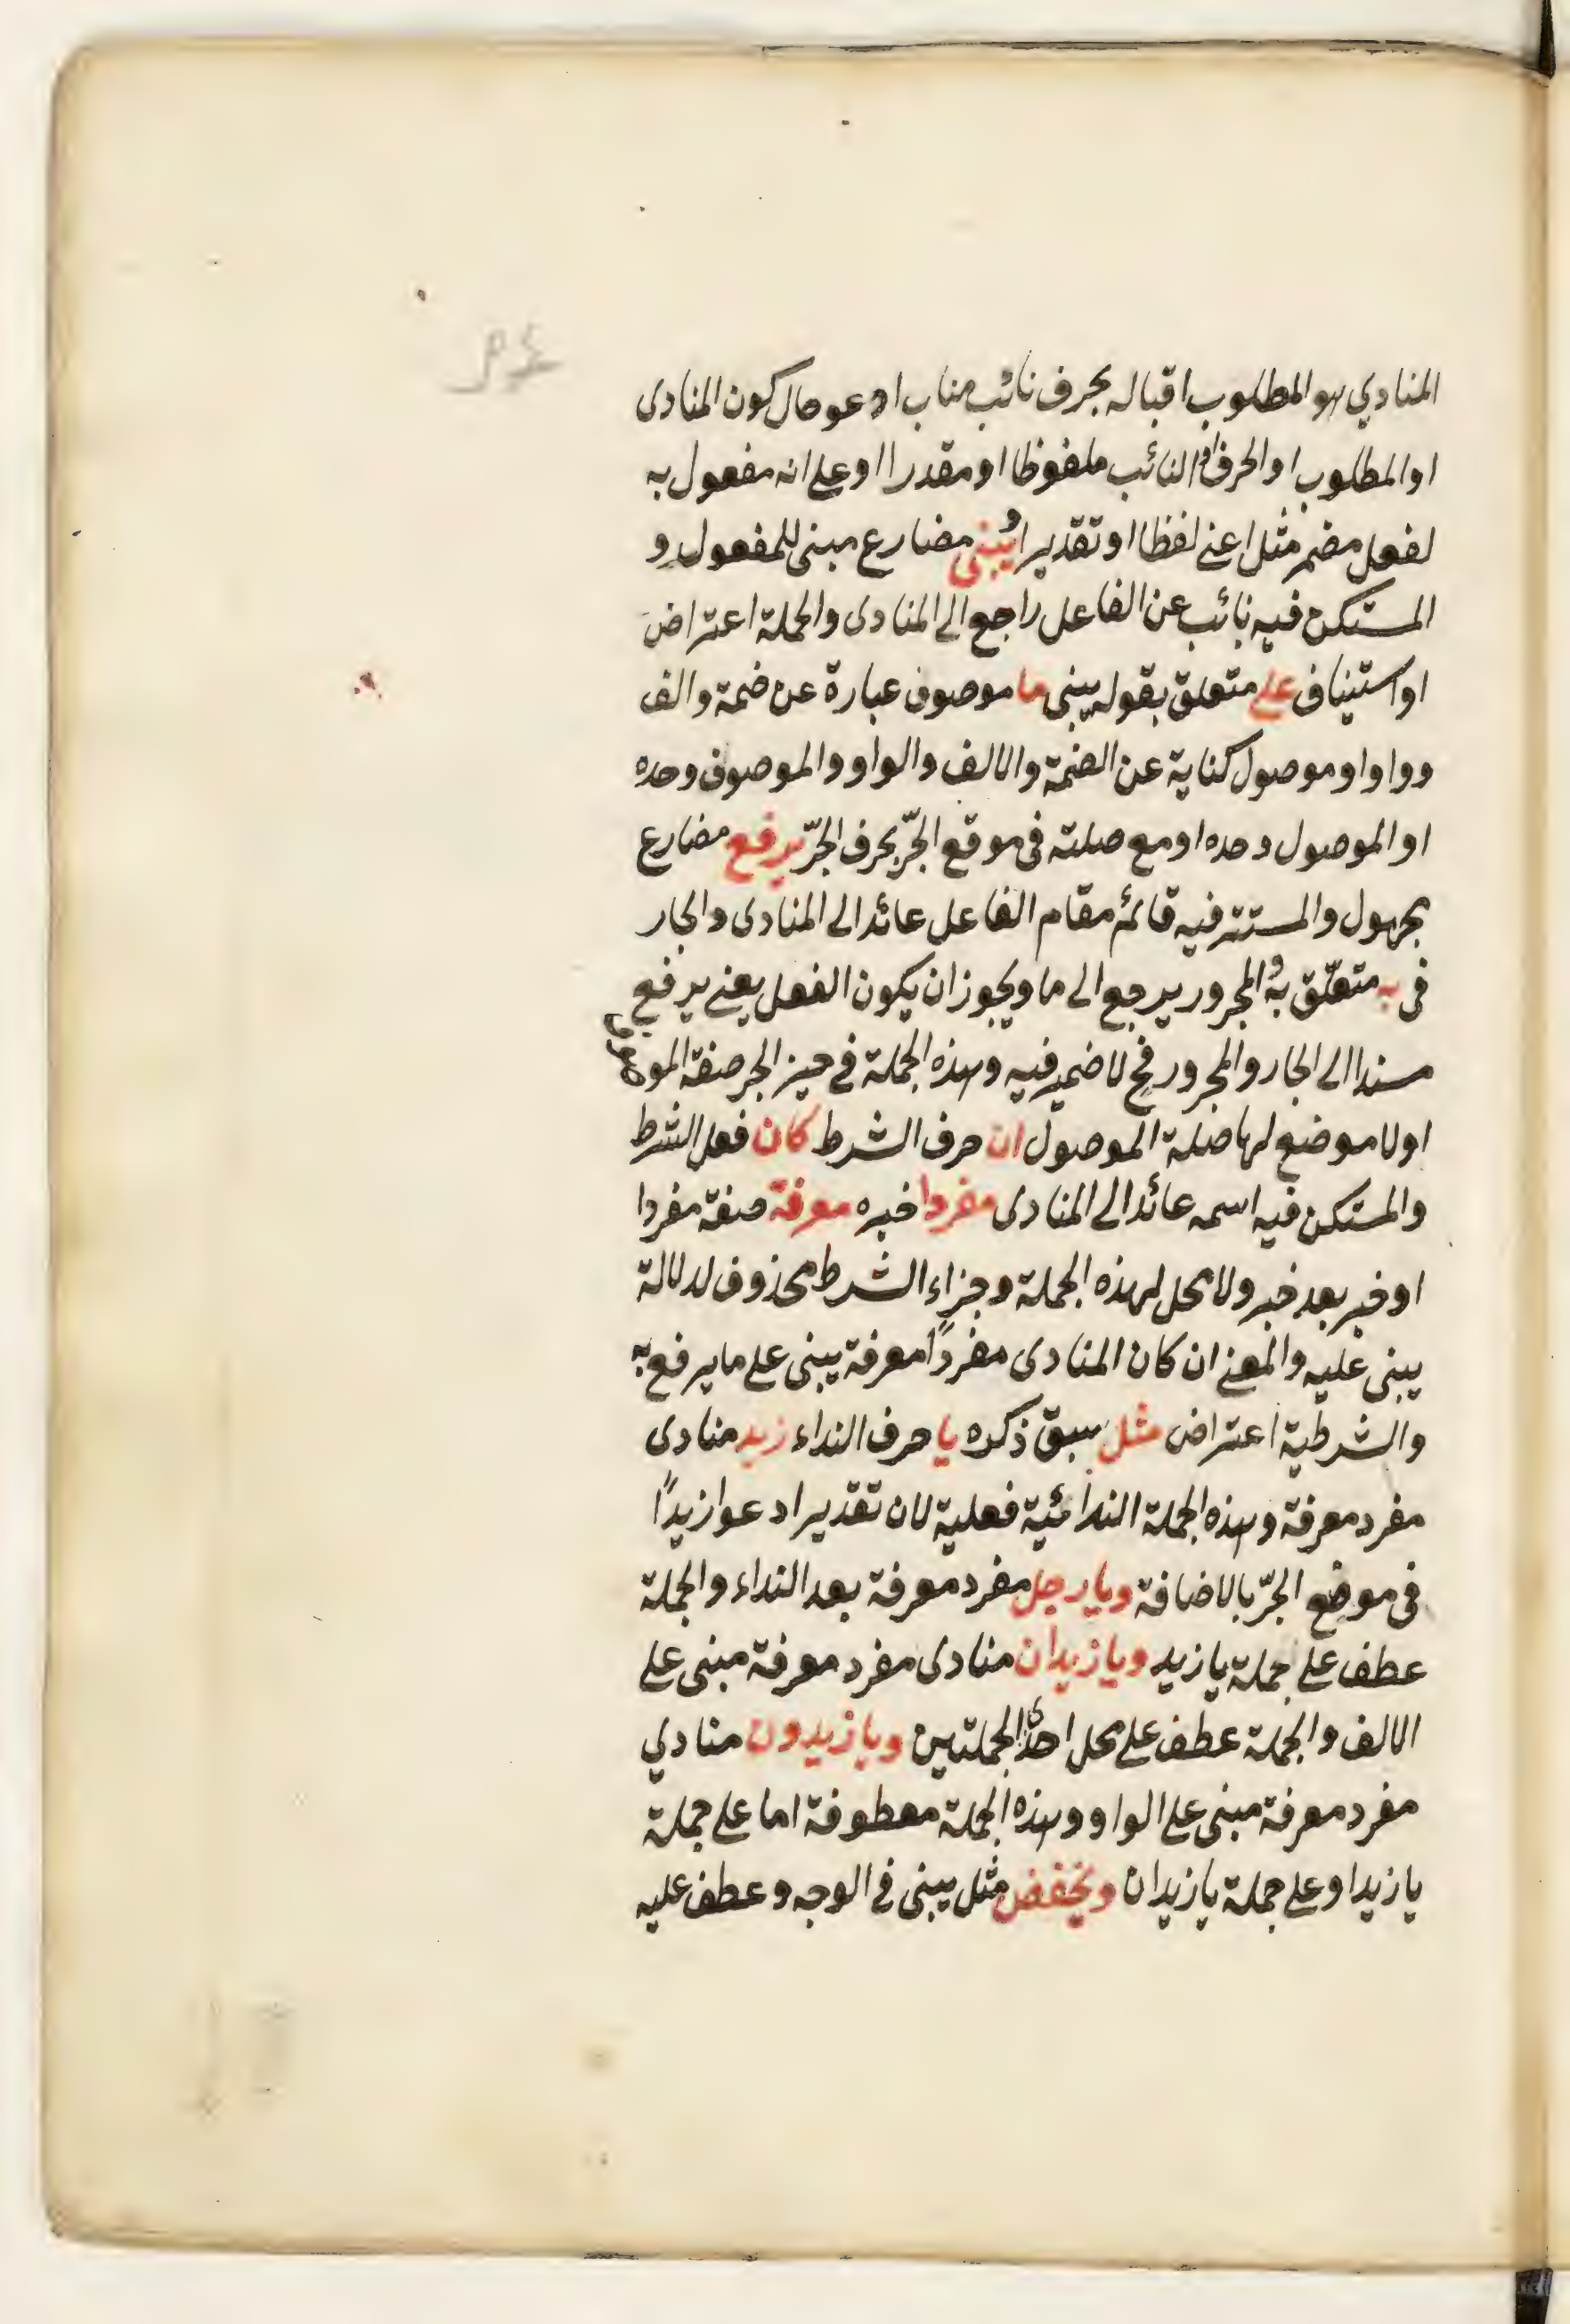 المنادي هو المطلوب اقباله بحرف نائب مناب ادعو حال كون المنادى
او المطلوب او الحرف النائب ملفوظا او مقدرا او على انه مفعول به
لفعل مضمر مثل اعنى لفظا او تقديرا ويبنى مضارع مبنى للمفعول و
المستكن فيه نائب عن الفاعل راجع الى المنادى والجملة اعتراض
او استيناف على متعلق بقوله يبنى ما موصوف عبارة عن ضمة والف
وواو او موصول كناية عن الضمة والالف والواو والموصوف وحده
او الموصول وحده او مع صلته فى موقع الجرّ بحرف الجرّ يرفع مضارع
مجهول والمستتر فيه قائم مقام الفاعل عائد الى المنادى والجار
فى به متعلّق به والمجرور يرجع الى ما ويجوز ان يكون الفعل يعنى يرفع
مسندا الى الجار والمجرور فح لا ضمير فيه وهذه الجملة فى حيز الجر صفة الموصوف
او لا موضع لها صلة الموصول ان حرف الشرط كان فعل الشرط
والمستكن فيه اسمه عائد الى المنادى مفردا خبره معرفة صفة مفردا
او خبر بعد خبر ولا محل لهذه الجملة وجزاء الشرط محذوف لدلالة
يبنى عليه والمعنى ان كان المنادى مفردًا معرفة يبنى على ما يرفع به
والشرطية اعتراض مثل سبق ذكره يا حرف النداء زيد منادى
مفرد معرفة وهذه الجملة الندائية فعلية لان تقديره ادعوا زيدًا
فى موضع الجرّ بالاضافة ويا رجل مفرد معرفة بعد النداء والجملة
عطف على جملة يا زيد ويا زيدان منادى مفرد معرفة مبنى على
الالف والجملة عطف على محل احدى الجملتين ويا زيدون منادي
مفرد معرفة مبنى على الواو وهذه الجملة معطوفة اما على جملة
يا زيد او على جملة يا زيدان ويخفض مثل يبنى فى الوجه وعطف عليه